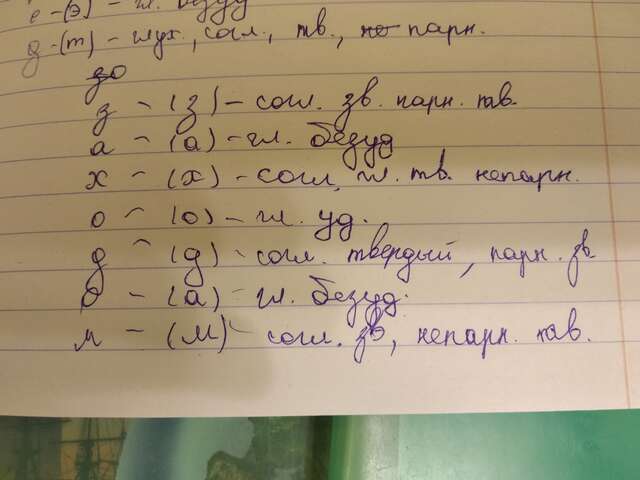 е - (э) - гл. безуд
д - (т) - глух., согл., тв., парн.
з - (з) - согл. зв. парн. тв.
а - (а) - гл. безуд
х - (х) - согл, гл. тв. непарн.
о - (о) - гл. уд.
д - (д) - согл. твердый, парн. зв.
о - (а) - гл. безуд.
м - (м) - согл. зв, непарн. тв.